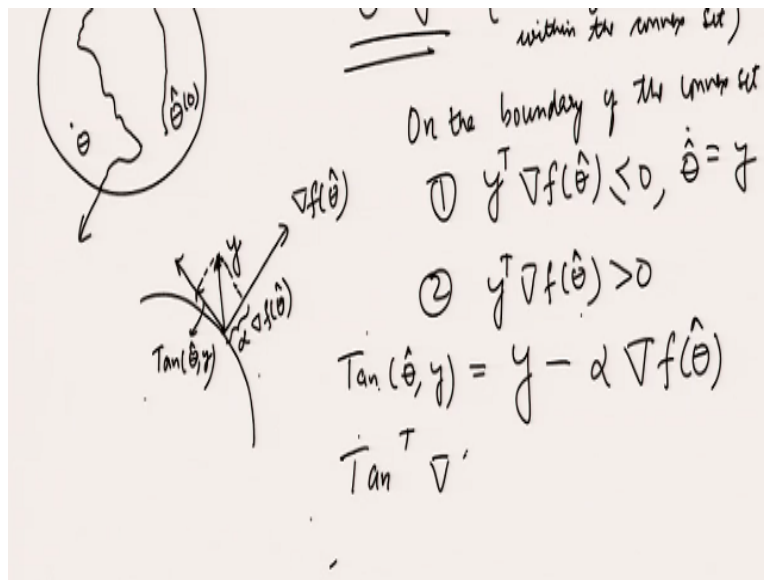 within the convex set)
On the boundary of the convex set
θ̂(0)
θ
① yᵀ ∇f(θ̂) ≤ 0, θ̂̇ = y
∇f(θ̂)
y
② yᵀ ∇f(θ̂) > 0
α ∇f(θ̂)
Tan(θ̂, y)
Tan(θ̂, y) = y − α ∇f(θ̂)
Tanᵀ ∇